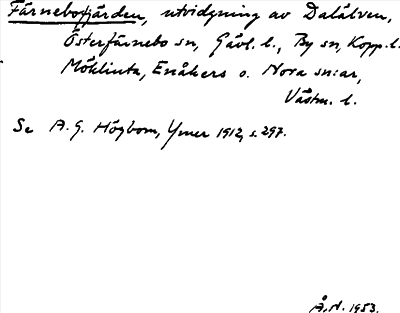 Färnebofjärden, utvidgning av Dalälven,
Österfärnebo sn, Gävl. l., By sn, Kopp. l.
Möklinta, Enåkers o. Nora sn:ar,
Västm. l.
Se A. G. Högbom, Ymer 1912, s. 297.
Å. N. 1953.